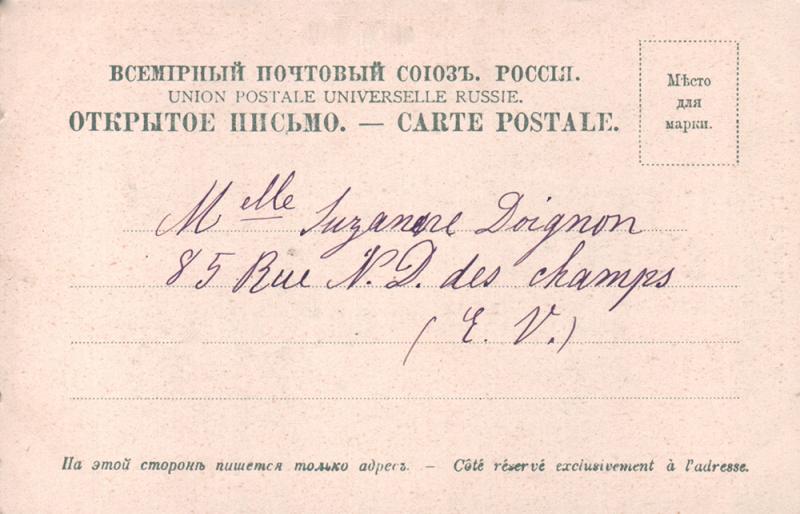 ВСЕМІРНЫЙ ПОЧТОВЫЙ СОЮЗЪ. РОССІЯ.
UNION POSTALE UNIVERSELLE RUSSIE.
ОТКРЫТОЕ ПИСЬМО. — CARTE POSTALE.
Мѣсто
для
марки.
Melle Suzanne Doignon
85 Rue N. D. des champs
(E. V.)
На этой сторонѣ пишется только адресъ. — Côté réservé exclusivement à l'adresse.